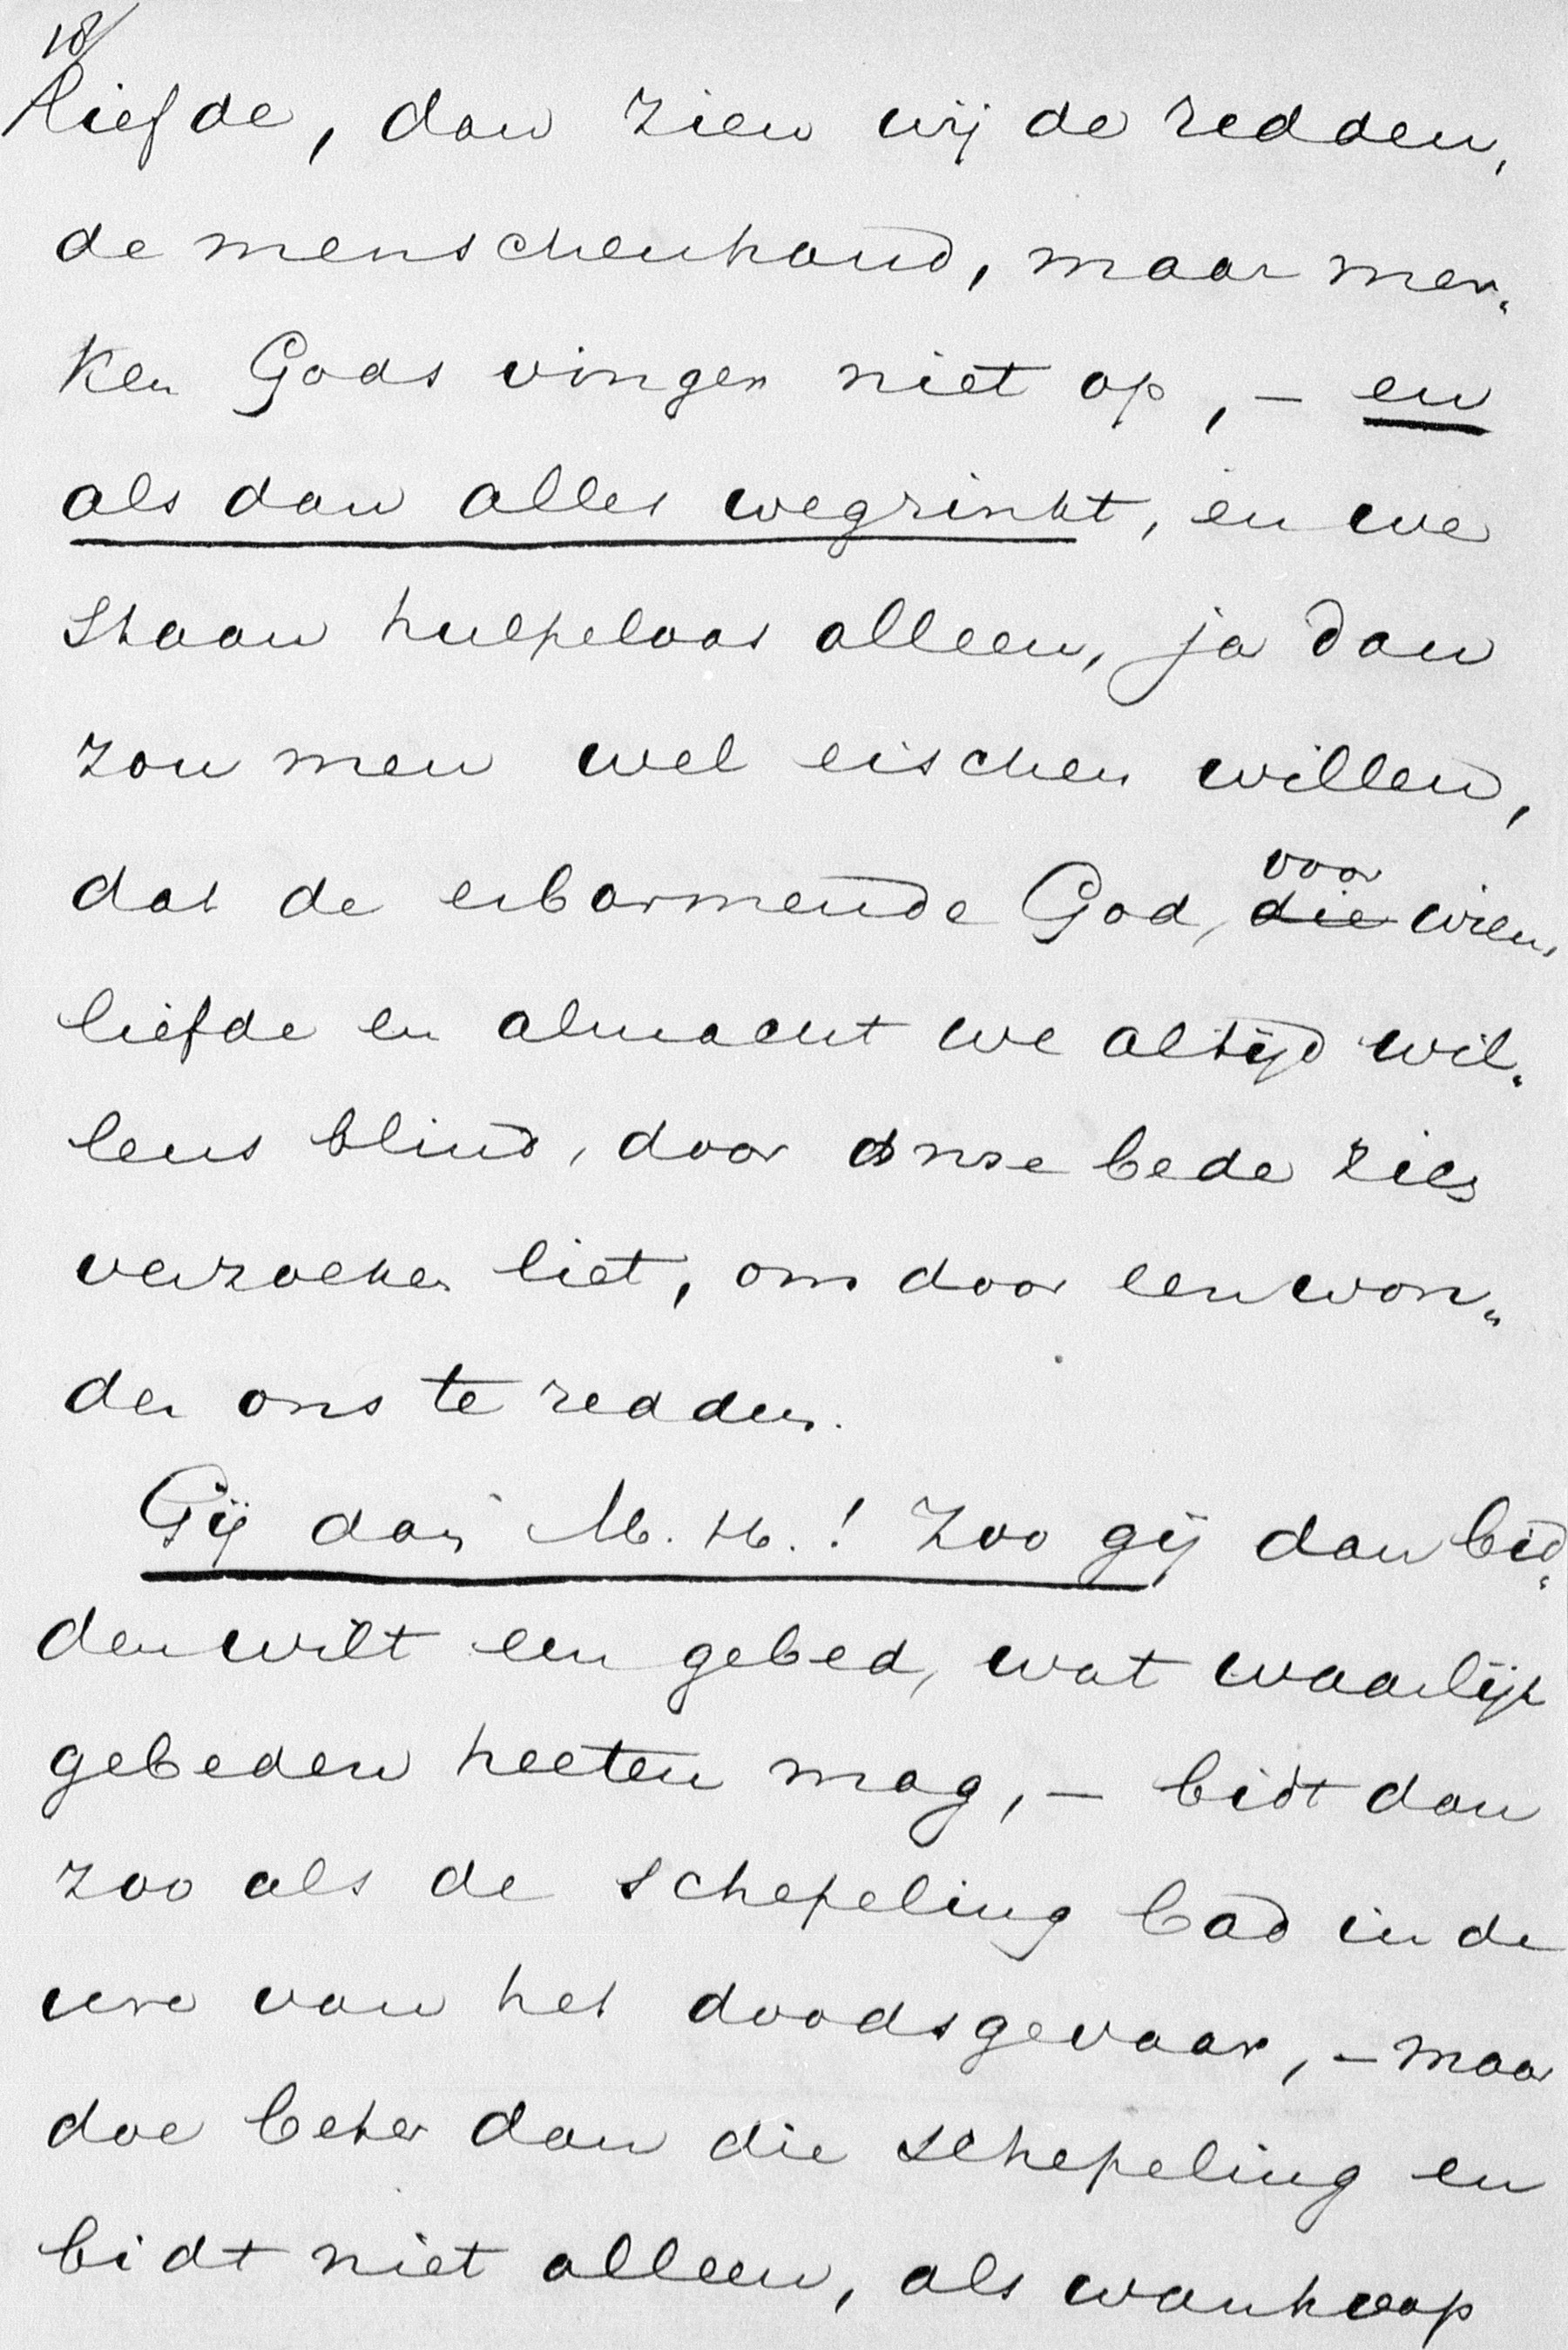 18/
liefde, dan zien wij de redden„
de menschenhand, maar mer„
ken Gods vinger niet op, – en
als dan alles wegzinkt, en we
staan hulpeloos alleen, ja dan
zou men wel eischen willen,
dat de erbarmende God, voor
die wiens
liefde en almacht we altijd wil„
lens blind, door onze bede zich
verzoeken liet, om door een won„
der ons te redden.
Gij dan M. H.! Zoo gij dan bid„
den wilt een gebed, wat waarlijk
gebeden heeten mag, – bidt dan
zoo als de schepeling bad in de
ure van het doodsgevaar, – maar
doe beter dan die schepeling en
bidt niet alleen, als wanhoop